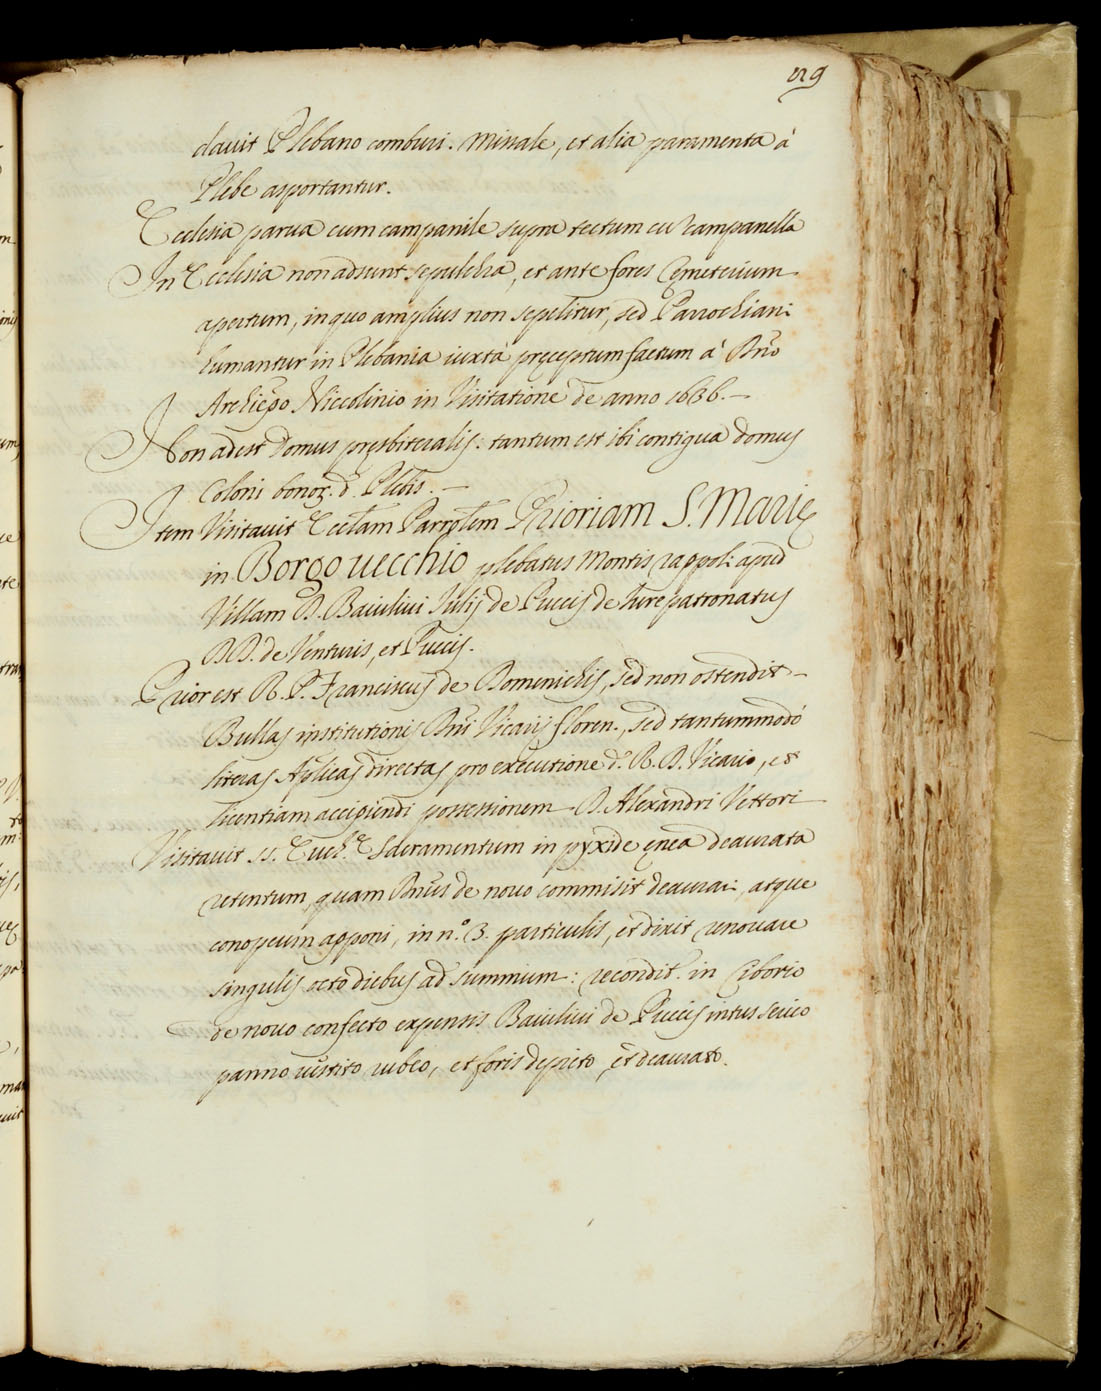 129
davit Plebano comburi. Missale, et alia paramenta à
Plebe asportantur.
Ecclesia parva cum campanile supra tectum cu campanella
In Ecclesia non adsunt sepulchra, et ante fores Cemeterium
apertum, in quo amplius non sepelitur, sed Parrochiani
humantur in Plebania iuxta pręceptum factum à Bño
Archiepo Niccolinio in Visitatione de anno 1636.-
Non adest Domus pręsbiteralis: tantum est ibi contigua domus
Coloni bonoꝝ. d. Plebis.-
Item Visitavit Ecclam Parrolem Prioriam S. Marię
in Borgo uecchio plebatus Montis rappoli apud
Villam D. Baiulivi Iulij de Puccis de Iure patronatus
DD. de Venturis, et Puccis.
Prior est R. P. Franciscus de Domenichis, sed non ostendit-
Bullas institutionis Dñi Vicarij floren., sed tantummodò
literas Aplicas directas pro executione d. R. D. Vicario, et
licentiam accipiendi possessionem D. Alexandri Vettori
Visitavit SS. Euch.ę Sacramentum in pyxide ęnea deaurata
retentum, quam Bñus de novo commisit deaurari, atque
conopeum apponi, in n.º 3. particulis, et dixit renovare
singulis octo diebus ad summum: recondit. in Ciborio
de novo confecto expensis Baiulivi de Puccis intus serico
panno vestito rubeo, et foris depicto, et deaurato.